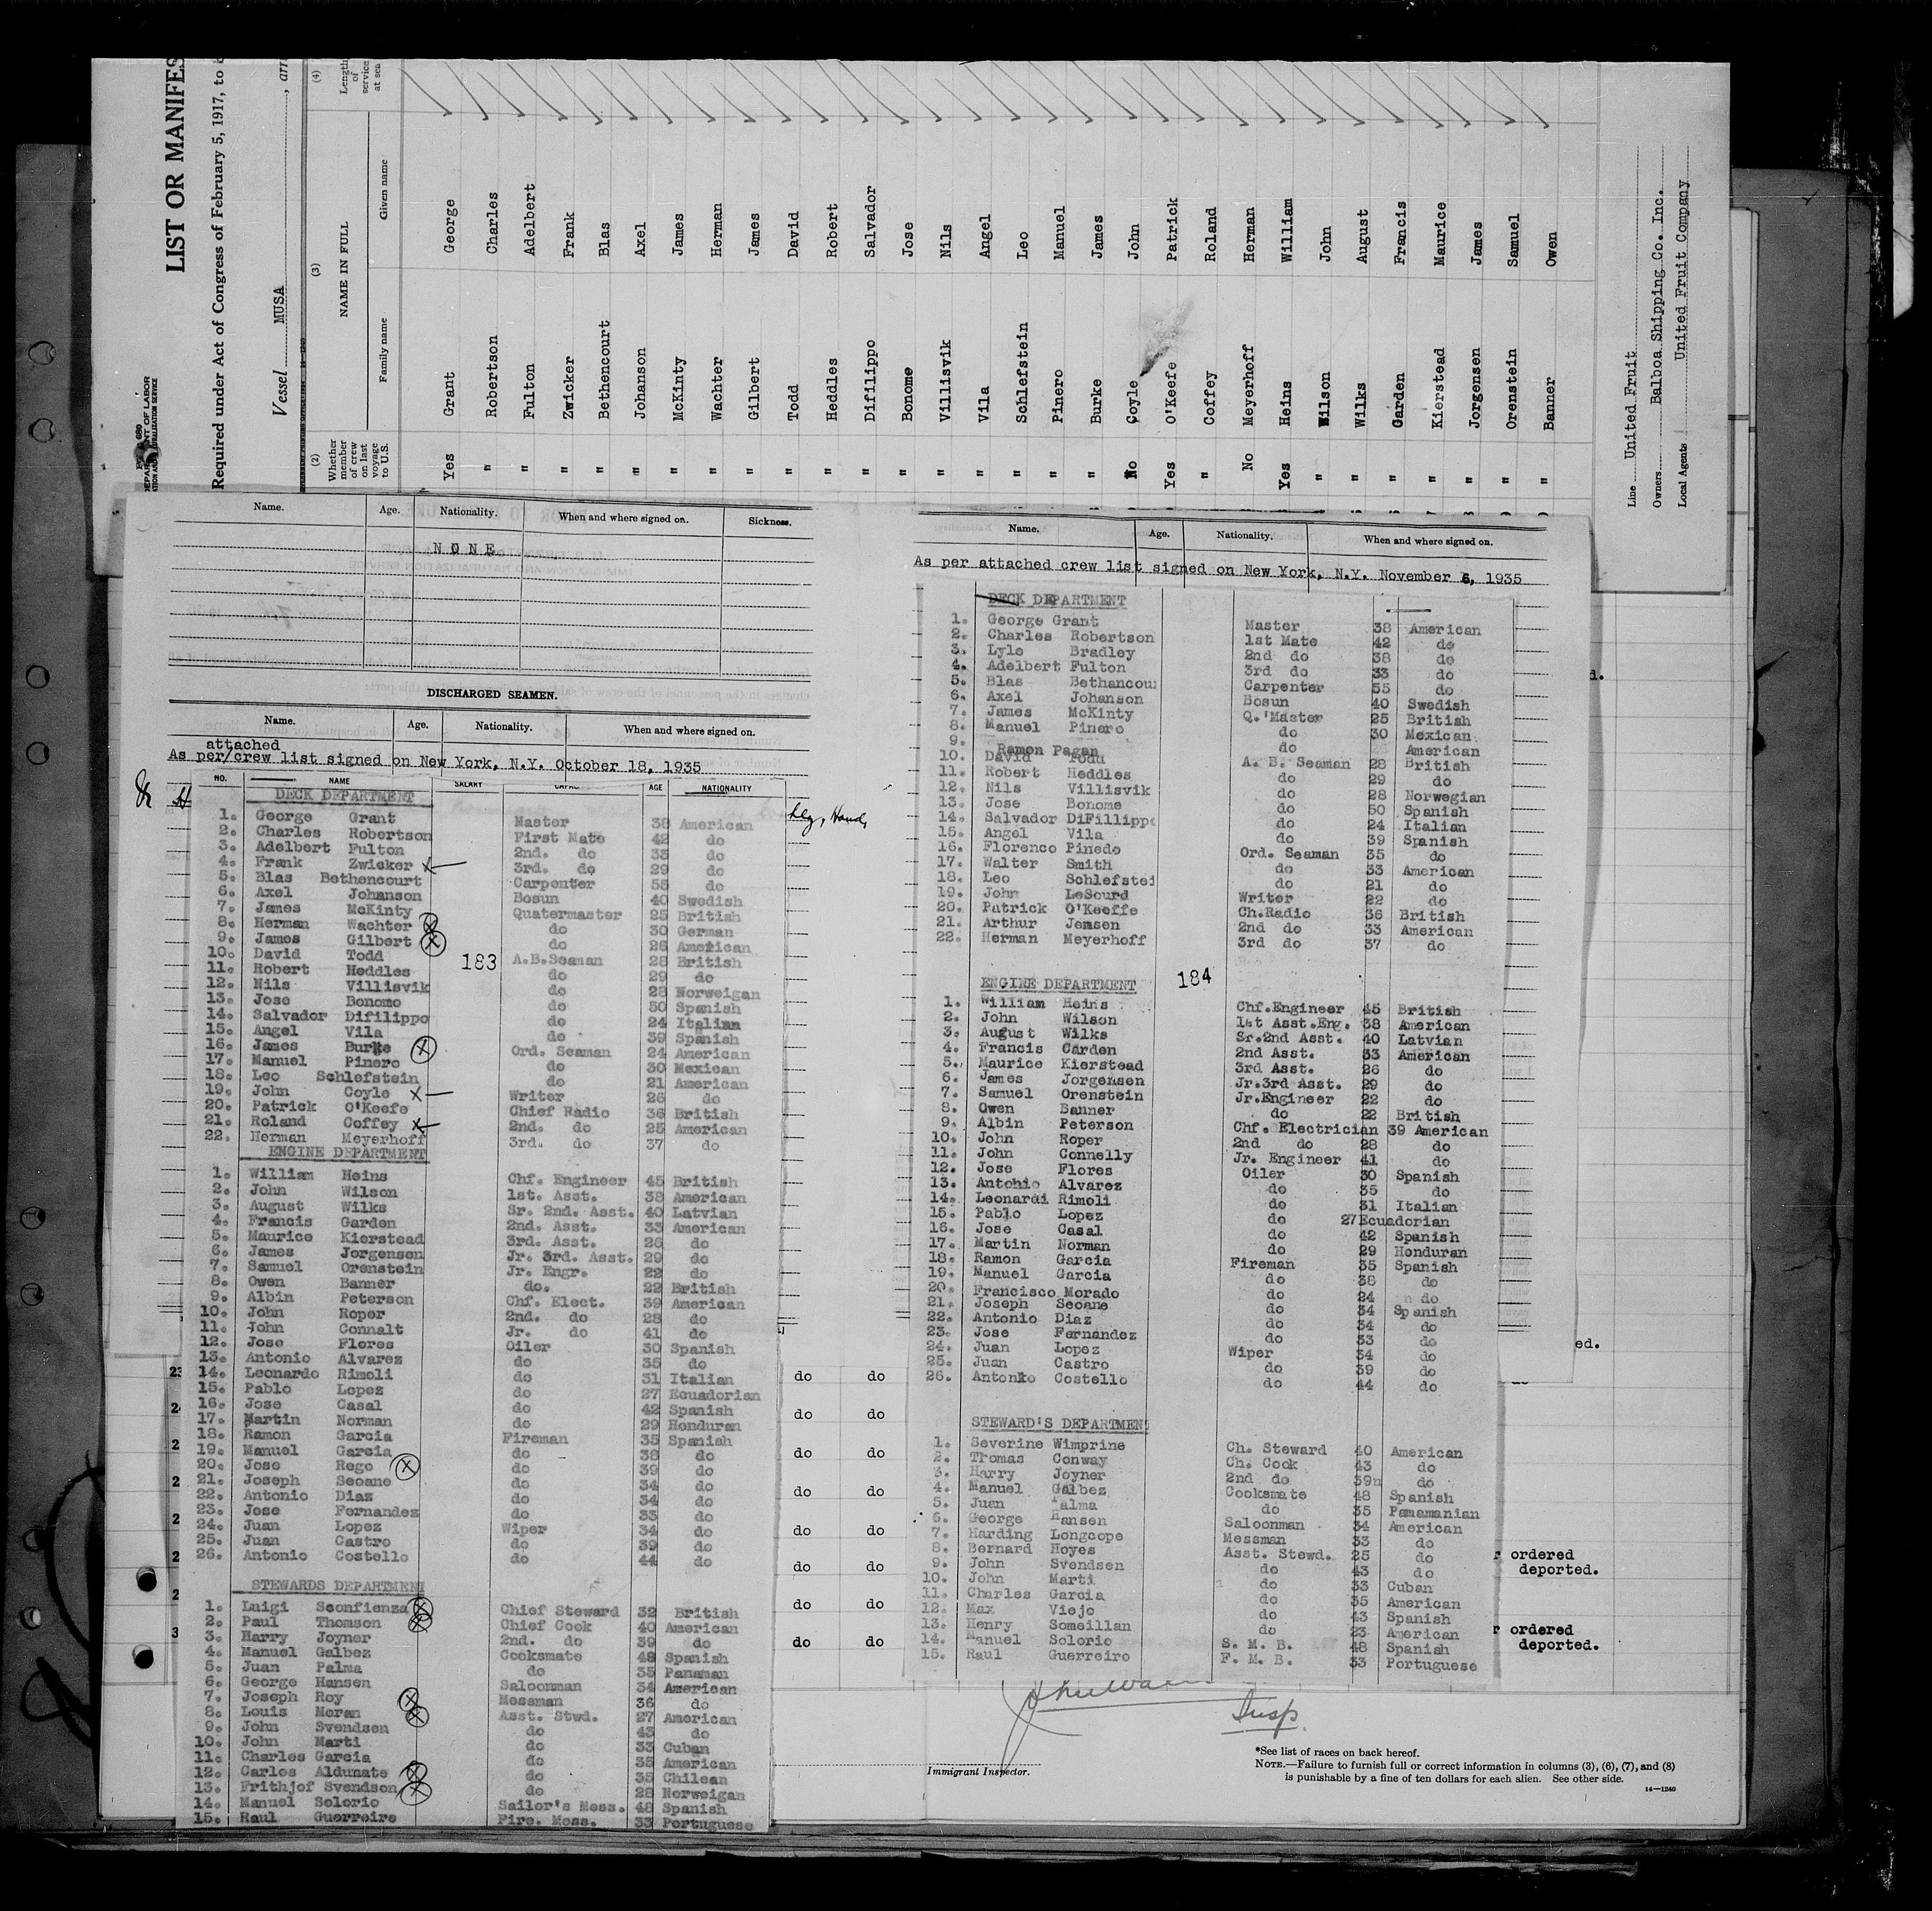 LIST OR MANIFES
Required under Act of Congress of February 5, 1917, to
Vessel MUSA, arr
(2) Whether member of crew on last voyage to U.S.
(3) NAME IN FULL
Family name Given name
(4) Length of service at sea
Yes Grant George
" Robertson Charles
" Fulton Adelbert
" Zwicker Frank
" Bethencourt Blas
" Johanson Axel
" McKinty James
" Wachter Herman
" Gilbert James
" Todd David
" Heddles Robert
" Difilippo Salvador
" Bonome Jose
" Villisvik Nils
" Vila Angel
" Schlefstein Leo
" Pinero Manuel
" Burke James
No Coyle John
Yes O'Keefe Patrick
" Coffey Roland
No Meyerhoff Herman
Yes Heins William
" Wilson John
" Wilks August
" Garden Francis
" Kierstead Maurice
" Jorgensen James
" Orenstein Samuel
" Banner Owen
Line United Fruit
Owners Balboa Shipping Co. Inc.
Local Agents United Fruit Company
Name. Age. Nationality. When and where signed on. Sickness.
NONE
DISCHARGED SEAMEN.
Name. Age. Nationality. When and where signed on.
attached
As per/crew list signed on New York, N.Y. October 18, 1935
NO. NAME SALARY AGE NATIONALITY
DECK DEPARTMENT
1. George Grant Master 38 American
2. Charles Robertson First Mate 42 do
3. Adelbert Fulton 2nd. do 33 do
4. Frank Zwicker 3rd. do 29 do
5. Blas Bethencourt Carpenter 55 do
6. Axel Johanson Bosun 40 Swedish
7. James McKinty Quatermaster 25 British
8. Herman Wachter do 30 German
9. James Gilbert do 26 American
10. David Todd A.B.Seaman 28 British
183
11. Robert Heddles do 29 do
12. Nils Villisvik do 28 Norweigan
13. Jose Bonomo do 50 Spanish
14. Salvador Difilippo do 24 Italian
15. Angel Vila do 39 Spanish
16. James Burke Ord. Seaman 24 American
17. Manuel Pinero do 30 Mexican
18. Leo Schlefstein do 21 American
19. John Coyle Writer 26 do
20. Patrick O'Keefe Chief Radio 36 British
21. Roland Coffey 2nd. do 25 American
22. Herman Meyerhoff 3rd. do 37 do
ENGINE DEPARTMENT
1. William Heins Chf. Engineer 45 British
2. John Wilson 1st. Asst. 38 American
3. August Wilks Sr. 2nd. Asst. 40 Latvian
4. Francis Garden 2nd. Asst. 33 American
5. Maurice Kierstead 3rd. Asst. 26 do
6. James Jorgensen Jr. 3rd. Asst. 29 do
7. Samuel Orenstein Jr. Engr. 22 do
8. Owen Banner do. 22 British
9. Albin Peterson Chf. Elect. 39 American
10. John Roper 2nd. do 28 do
11. John Connalt Jr. do 41 do
12. Jose Flores Oiler 30 Spanish
13. Antonio Alvarez do 35 do
14. Leonardo Rimoli do 31 Italian
15. Pablo Lopez do 27 Ecuadorian
16. Jose Casal do 42 Spanish
17. Martin Norman do 29 Honduran
18. Ramon Garcia Fireman 35 Spanish
19. Manuel Garcia do 38 do
20. Jose Rego do 39 do
21. Joseph Seoane do 34 do
22. Antonio Diaz do 34 do
23. Jose Fernandez do 33 do
24. Juan Lopez Wiper 34 do
25. Juan Castro do 39 do
26. Antonio Costello do 44 do
STEWARDS DEPARTMENT
1. Luigi Sconfienza Chief Steward 32 British
2. Paul Thomsen Chief Cook 40 American
3. Harry Joyner 2nd. do 39 do
4. Manuel Galbez Cooksmate 48 Spanish
5. Juan Palma do 35 Panaman
6. George Hansen Saloonman 34 American
7. Joseph Roy Messman 36 do
8. Louis Moran Asst. Stwd. 27 American
9. John Svendsen do 43 do
10. John Marti do 33 Cuban
11. Charles Garcia do 35 American
12. Carlos Aldunate do 35 Chilean
13. Frithjof Svendson do 28 Norweigan
14. Manuel Solorio Sailor's Mess. 48 Spanish
15. Raul Guerreiro Fire. Mess. 33 Portuguese
Name. Age. Nationality. When and where signed on.
As per attached crew list signed on New York, N.Y. November 6, 1935
DECK DEPARTMENT
1. George Grant Master 38 American
2. Charles Robertson 1st Mate 42 do
3. Lyle Bradley 2nd do 38 do
4. Adelbert Fulton 3rd do 33 do
5. Blas Bethancou Carpenter 55 do
6. Axel Johanson Bosun 40 Swedish
7. James McKinty Q.'Master 25 British
8. Manuel Pinero do 30 Mexican
9. Ramon Pagan do American
10. David Todd A. B. Seaman 28 British
11. Robert Heddles do 29 do
12. Nils Villisvik do 28 Norwegian
13. Jose Bonome do 50 Spanish
14. Salvador DiFillippo do 24 Italian
15. Angel Vila do 39 Spanish
16. Florenco Pinedo Ord. Seaman 35 do
17. Walter Smith do 33 American
18. Leo Schlefstei do 21 do
19. John LeSourd Writer 22 do
20. Patrick O'Keeffe Ch.Radio 36 British
21. Arthur Jensen 2nd do 33 American
22. Herman Meyerhoff 3rd do 37 do
184
ENGINE DEPARTMENT
1. William Heins Chf.Engineer 45 British
2. John Wilson 1st Asst.Eng. 38 American
3. August Wilks Sr.2nd Asst. 40 Latvian
4. Francis Carden 2nd Asst. 33 American
5. Maurice Kierstead 3rd Asst. 26 do
6. James Jorgensen Jr.3rd Asst. 29 do
7. Samuel Orenstein Jr.Engineer 22 do
8. Owen Banner do 22 British
9. Albin Peterson Chf. Electrician 39 American
10. John Roper 2nd do 28 do
11. John Connelly Jr. Engineer 41 do
12. Jose Flores Oiler 30 Spanish
13. Antonio Alvarez do 35 do
14. Leonardi Rimoli do 31 Italian
15. Pablo Lopez do 27 Ecuadorian
16. Jose Casal do 42 Spanish
17. Martin Norman do 29 Honduran
18. Ramon Garcia Fireman 35 Spanish
19. Manuel Garcia do 38 do
20. Francisco Morado do 24 do
21. Joseph Seoane do 34 Spanish
22. Antonio Diaz do 34 do
23. Jose Fernandez do 33 do
24. Juan Lopez Wiper 34 do
25. Juan Castro do 39 do
26. Antonio Costello do 44 do
STEWARD'S DEPARTMENT
1. Severine Wimprine Ch. Steward 40 American
2. Thomas Conway Ch. Cook 43 do
3. Harry Joyner 2nd do 39 do
4. Manuel Galbez Cooksmate 48 Spanish
5. Juan Palma do 35 Pamamanian
6. George Hansen Saloonman 34 American
7. Harding Longcope Messman 33 do
8. Bernard Hoyes Asst. Stewd. 25 do
9. John Svendsen do 43 do
10. John Marti do 33 Cuban
11. Charles Garcia do 35 American
12. Max Viejo do 43 Spanish
13. Henry Someillan do 23 American
14. Manuel Solorio S. M. B. 48 Spanish
15. Raul Guerreiro F. M. B. 33 Portuguese
do do
do do
do do
do do
do do
do do
do do
do do
ed.
ordered
deported.
ordered
deported.
Insp.
Immigrant Inspector.
*See list of races on back hereof.
NOTE.—Failure to furnish full or correct information in columns (3), (6), (7), and (8)
is punishable by a fine of ten dollars for each alien. See other side.
14—1240